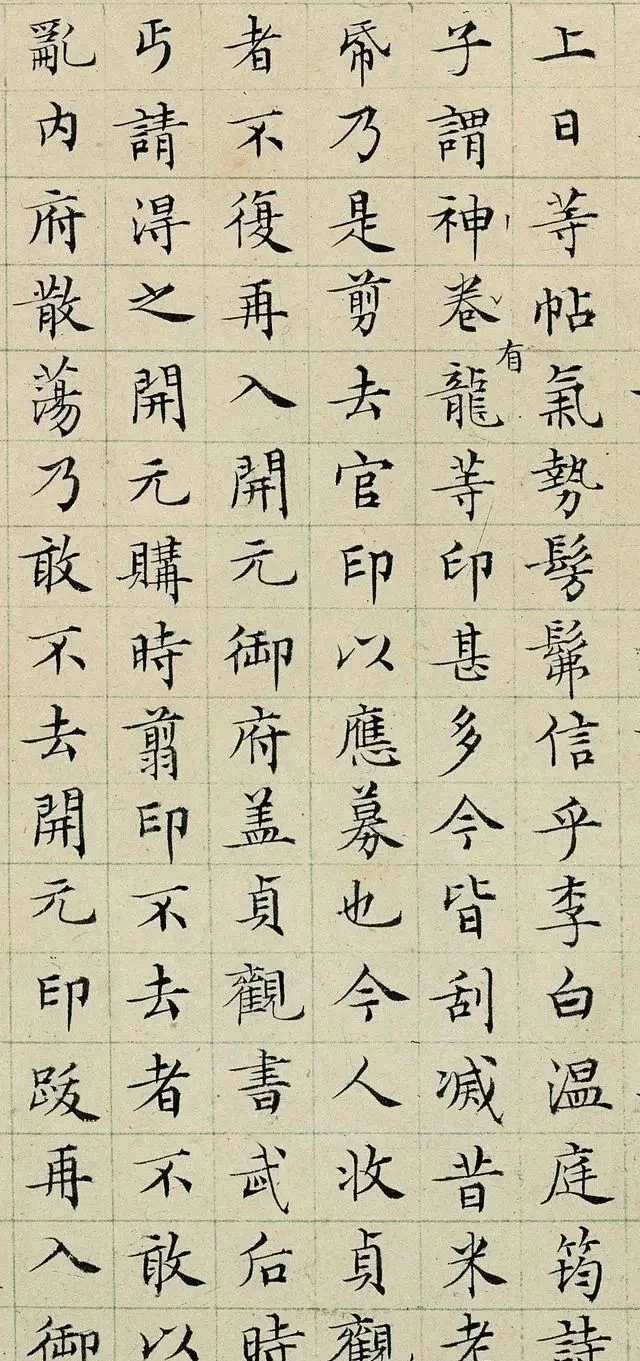 上日等帖氣勢髣髴信乎李白溫庭筠詩
子謂神卷有龍等印甚多今皆刮滅昔米老
帋乃是剪去官印以應募也今人收貞觀
者不復再入開元御府盖貞觀書武后時
丐請得之開元購時翦印不去者不敢以
亂內府散蕩乃敢不去開元印跋再入御